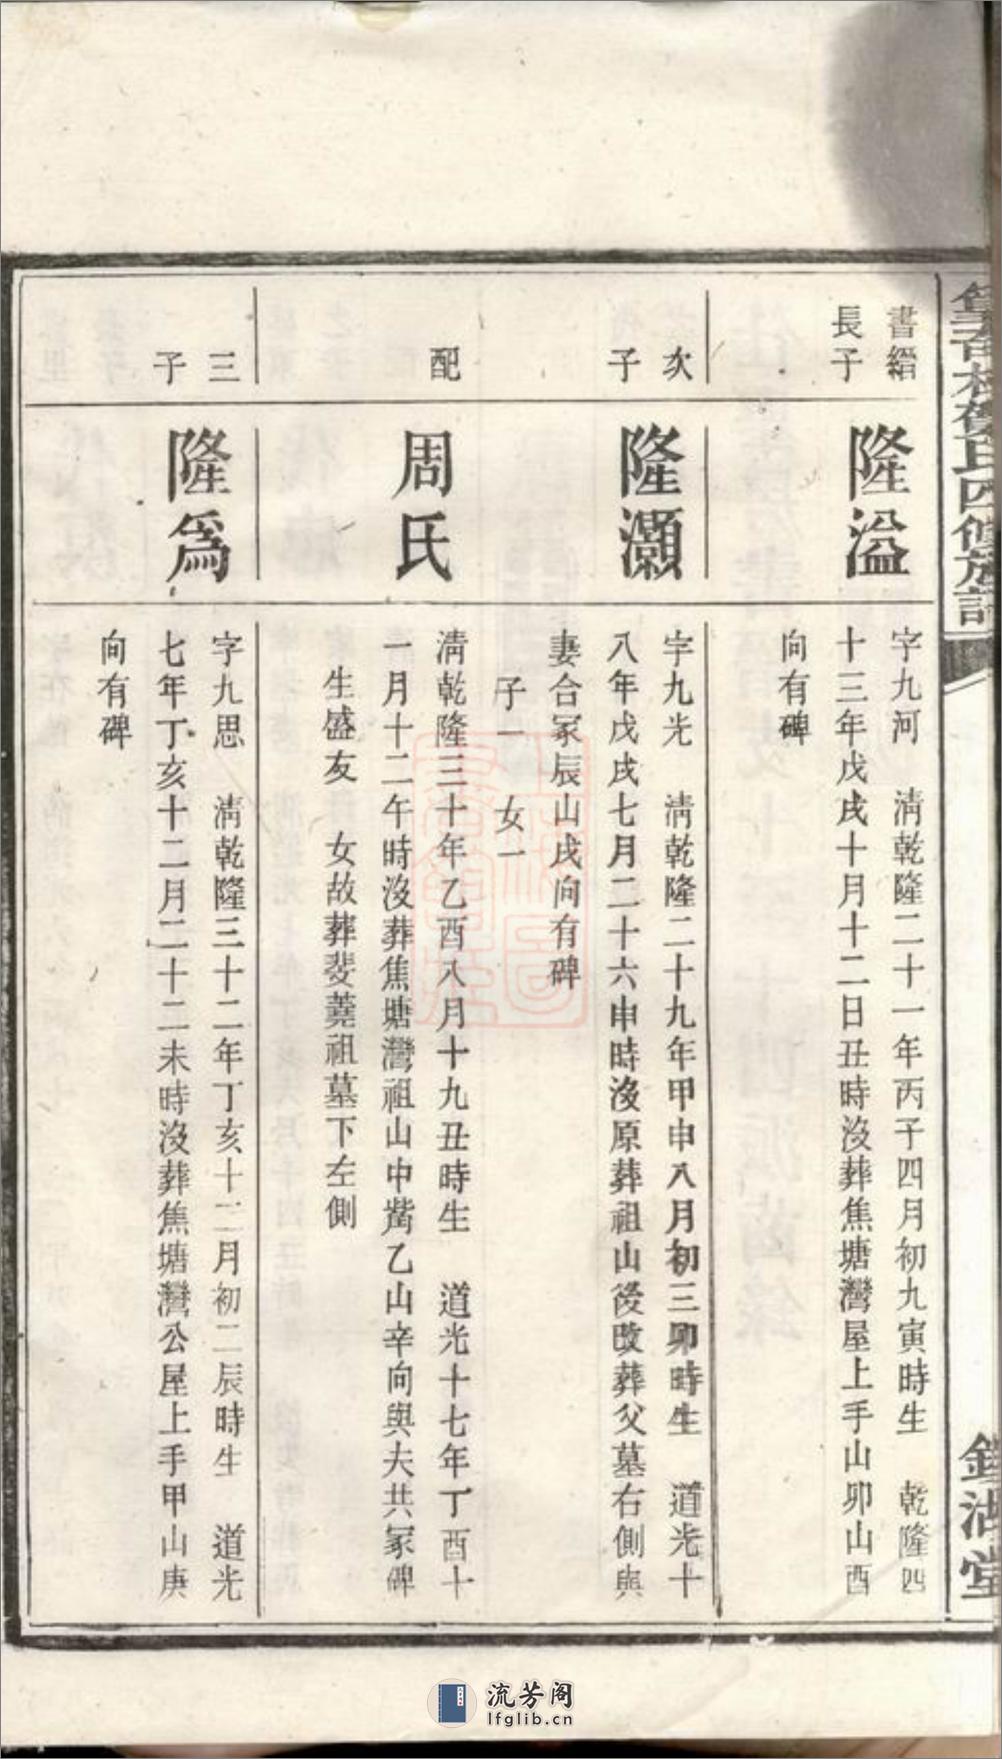 村賀氏四修族譜
鏡湖堂
書縉
長子
隆溢
字九河 清乾隆二十一年丙子四月初九寅時生 乾隆四
十三年戊戌十月十二日丑時沒葬焦塘灣屋上手山卯山酉
向有碑
次
子
隆灝
字九光 清乾隆二十九年甲申八月初三卯時生 道光十
八年戊戌七月二十六申時沒原葬祖山後改葬父墓右側與
妻合冢辰山戌向有碑
子一 女一
配
周氏
清乾隆三十年乙酉八月十九丑時生 道光十七年丁酉十
一月十二午時沒葬焦塘灣祖山中嘴乙山辛向與夫共冢碑
生盛友 女故葬婓蕘祖墓下左側
三
子
隆為
字九思 清乾隆三十二年丁亥十二月初二辰時生 道光
七年丁亥十二月二十二未時沒葬焦塘灣公屋上手甲山庚
向有碑
流芳阁
lfglib.cn